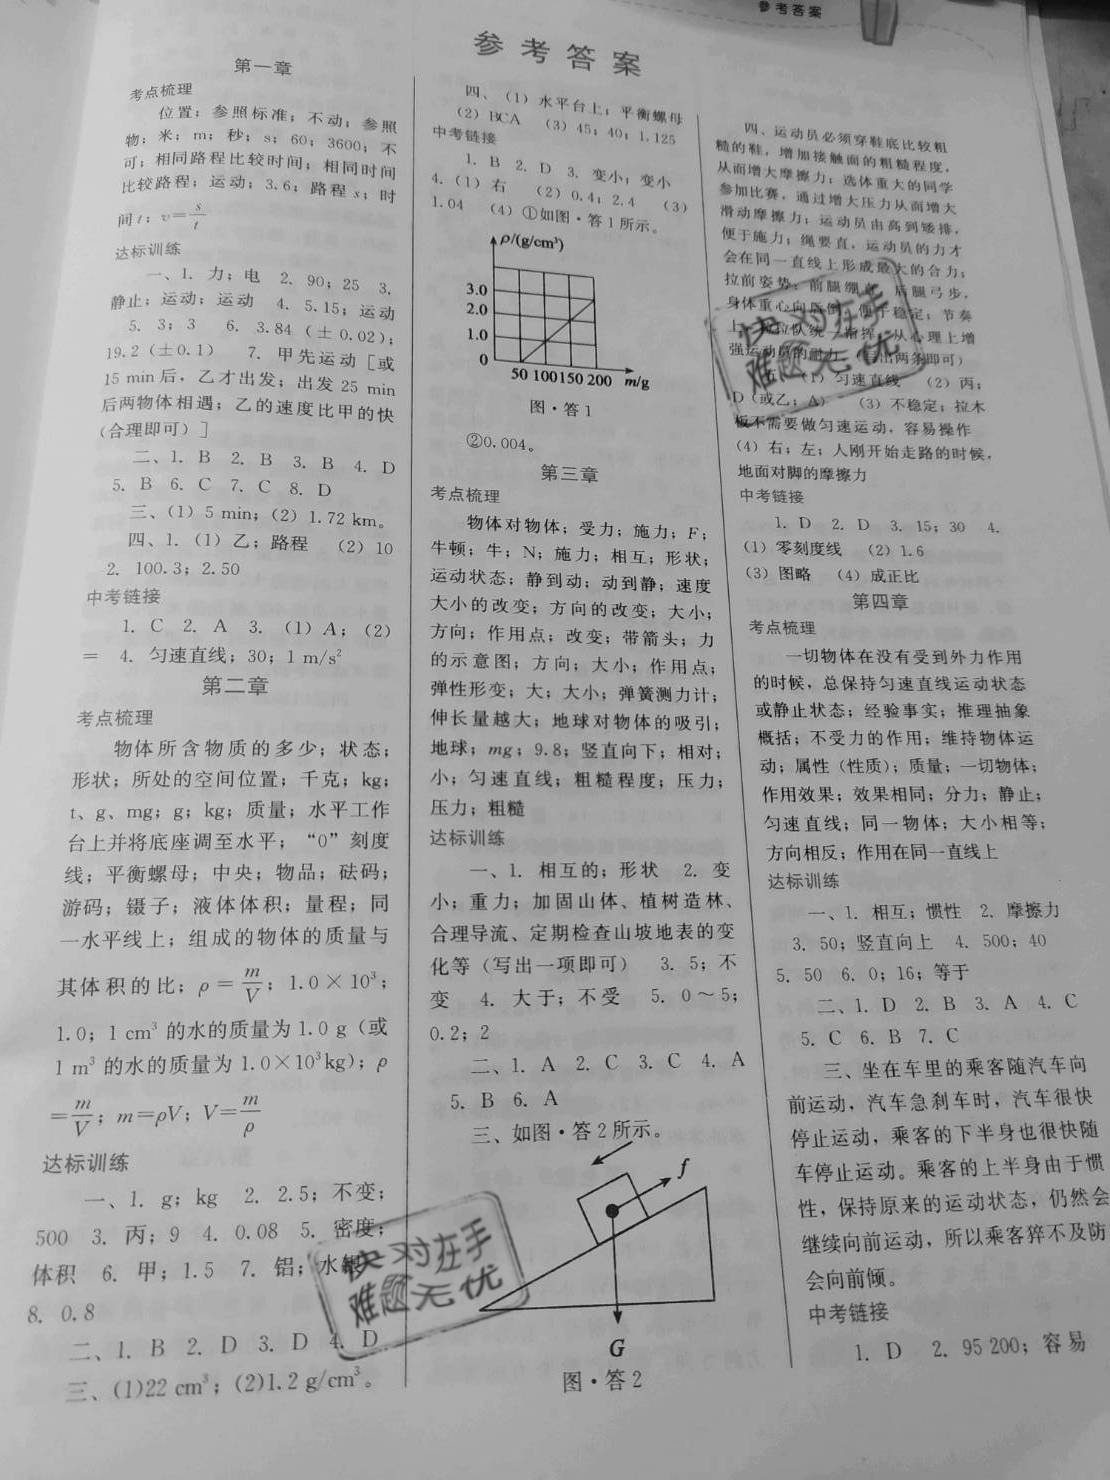 参考答案
参考答案
第一章
考点梳理
位置；参照标准；不动；参照
物；米；m；秒；s；60；3600；不
可；相同路程比较时间；相同时间
比较路程；运动；3.6；路程 s；时
间 t；v=s/t
达标训练
一、1. 力；电 2. 90；25 3.
静止；运动；运动 4. 5.15；运动
5. 3；3 6. 3.84（±0.02）；
19.2（±0.1） 7. 甲先运动［或
15 min后，乙才出发；出发 25 min
后两物体相遇；乙的速度比甲的快
（合理即可）］
二、1. B 2. B 3. B 4. D
5. B 6. C 7. C 8. D
三、（1）5 min；（2）1.72 km。
四、1.（1）乙；路程 （2）10
2. 100.3；2.50
中考链接
1. C 2. A 3.（1）A；（2）
= 4. 匀速直线；30；1 m/s²
第二章
考点梳理
物体所含物质的多少；状态；
形状；所处的空间位置；千克；kg；
t、g、mg；g；kg；质量；水平工作
台上并将底座调至水平；“0”刻度
线；平衡螺母；中央；物品；砝码；
游码；镊子；液体体积；量程；同
一水平线上；组成的物体的质量与
其体积的比；ρ=m/V；1.0×10³；
1.0；1 cm³ 的水的质量为 1.0 g（或
1 m³ 的水的质量为 1.0×10³kg）；ρ
=m/V；m=ρV；V=m/ρ
达标训练
一、1. g；kg 2. 2.5；不变；
500 3. 丙；9 4. 0.08 5. 密度；
体积 6. 甲；1.5 7. 铝；水
8. 0.8
二、1. B 2. D 3. D 4. D
三、(1)22 cm³；(2)1.2 g/cm³。
四、（1）水平台上；平衡螺母
（2）BCA （3）45；40；1.125
中考链接
1. B 2. D 3. 变小；变小
4.（1）右 （2）0.4；2.4 （3）
1.04 （4）①如图·答1所示。
ρ/(g/cm³)
3.0
2.0
1.0
0
50 100 150 200 m/g
图·答1
②0.004。
第三章
考点梳理
物体对物体；受力；施力；F；
牛顿；牛；N；施力；相互；形状；
运动状态；静到动；动到静；速度
大小的改变；方向的改变；大小；
方向；作用点；改变；带箭头；力
的示意图；方向；大小；作用点；
弹性形变；大；大小；弹簧测力计；
伸长量越大；地球对物体的吸引；
地球；mg；9.8；竖直向下；相对；
小；匀速直线；粗糙程度；压力；
压力；粗糙
达标训练
一、1. 相互的；形状 2. 变
小；重力；加固山体、植树造林、
合理导流、定期检查山坡地表的变
化等（写出一项即可） 3. 5；不
变 4. 大于；不受 5. 0～5；
0.2；2
二、1. A 2. C 3. C 4. A
5. B 6. A
三、如图·答2所示。
f
G
图·答2
四、运动员必须穿鞋底比较粗
糙的鞋，增加接触面的粗糙程度，
从而增大摩擦力；选体重大的同学
参加比赛，通过增大压力从而增大
滑动摩擦力；运动员由高到矮排，
便于施力；绳要直，运动员的力才
会在同一直线上形成最大的合力；
拉前姿势：前腿绷直，后腿弓步，
身体重心向后倒，便于稳定；节奏
上，指挥，从心理上增
强运动员的耐力（出两条即可）
（1）匀速直线 （2）丙；
D（或乙；A） （3）不稳定；拉木
板不需要做匀速运动，容易操作
（4）右；左；人刚开始走路的时候，
地面对脚的摩擦力
中考链接
1. D 2. D 3. 15；30 4.
（1）零刻度线 （2）1.6
（3）图略 （4）成正比
第四章
考点梳理
一切物体在没有受到外力作用
的时候，总保持匀速直线运动状态
或静止状态；经验事实；推理抽象
概括；不受力的作用；维持物体运
动；属性（性质）；质量；一切物体；
作用效果；效果相同；分力；静止；
匀速直线；同一物体；大小相等；
方向相反；作用在同一直线上
达标训练
一、1. 相互；惯性 2. 摩擦力
3. 50；竖直向上 4. 500；40
5. 50 6. 0；16；等于
二、1. D 2. B 3. A 4. C
5. C 6. B 7. C
三、坐在车里的乘客随汽车向
前运动，汽车急刹车时，汽车很快
停止运动，乘客的下半身也很快随
车停止运动。乘客的上半身由于惯
性，保持原来的运动状态，仍然会
继续向前运动，所以乘客猝不及防
会向前倾。
中考链接
1. D 2. 95 200；容易
快对在手
难题无忧
快对在手
难题无忧